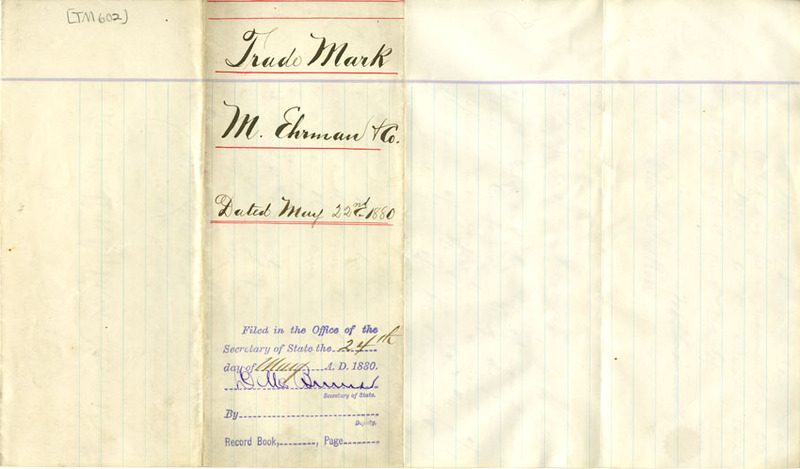 [TM602]
Trade Mark
M. Ehrman & Co.
Dated May 22nd 1880
Filed in the Office of the
Secretary of State the 24th
day of May A. D. 1880.
Secretary of State.
By
Deputy.
Record Book, , Page